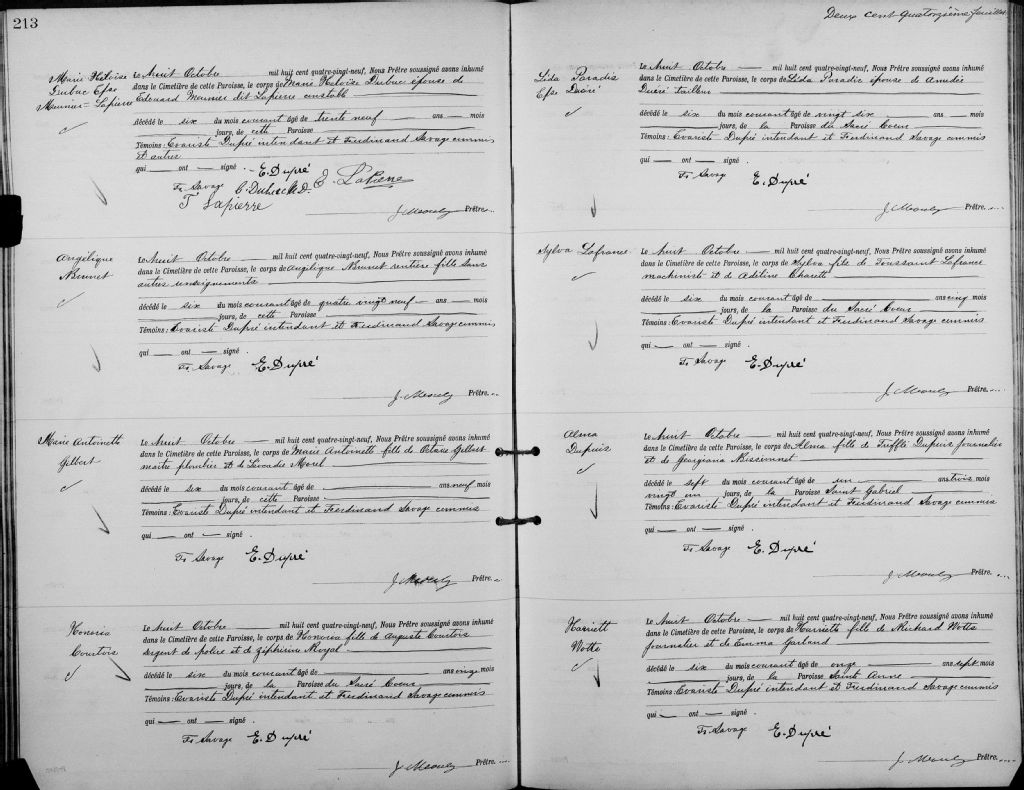 213
Marie Héloïse
Dubuc Epse
Meunier = Lapierre
Le huit Octobre — mil huit cent quatre-vingt-neuf, Nous Prêtre soussigné avons inhumé
dans le Cimetière de cette Paroisse, le corps de Marie Héloïse Dubuc épouse de
Edouard Meunier dit Lapierre constable
décédé le six du mois courant âgé de trente neuf — ans — mois
jours, de cette Paroisse
Témoins : Evariste Dupré intendant et Ferdinand Savage commis
et autres
qui — ont — signé . - E. Dupré
Fs Savage C. Dubuc M.D. E. Lapierre
T. Lapierre
Prêtre.
Angélique
Brunet
Le huit Octobre — mil huit cent quatre-vingt-neuf, Nous Prêtre soussigné avons inhumé
dans le Cimetière de cette Paroisse, le corps de Angélique Brunet rentière fille sans
autres renseignements
décédé le six du mois courant âgé de quatre vingt neuf — ans — mois
jours, de cette Paroisse
Témoins : Evariste Dupré intendant et Ferdinand Savage commis
qui — ont — signé .
Fs Savage E. Dupré
Prêtre.
Marie Antoinette
Gilbert
Le huit Octobre — mil huit cent quatre-vingt-neuf, Nous Prêtre soussigné avons inhumé
dans le Cimetière de cette Paroisse, le corps de Marie Antoinette fille de Octave Gilbert
maitre plombier et de Léocadie Morel
décédé le six du mois courant âgé de — ans neuf mois
jours, de cette Paroisse
Témoins : Evariste Dupré intendant et Ferdinand Savage commis
qui — ont — signé .
Fs Savage E. Dupré
Prêtre.
Honoria
Courtois
Le huit Octobre — mil huit cent quatre-vingt-neuf, Nous Prêtre soussigné avons inhumé
dans le Cimetière de cette Paroisse, le corps de Honoria fille de Auguste Courtois
sergent de police et de Zéphirine Moyal
décédé le six du mois courant âgé de — ans onze mois
jours, de la Paroisse du Sacré Coeur
Témoins : Evariste Dupré intendant et Ferdinand Savage commis
qui — ont — signé .
Fs Savage E. Dupré
Prêtre.
Deux cent quatorzième feuillet
Lida Paradis
Epse Ducré
Le huit Octobre — mil huit cent quatre-vingt-neuf, Nous Prêtre soussigné avons inhumé
dans le Cimetière de cette Paroisse, le corps de Lida Paradis épouse de Amédée
Ducré tailleur
décédé le six du mois courant âgé de vingt six — ans — mois
jours, de la Paroisse du Sacré Coeur
Témoins : Evariste Dupré intendant et Ferdinand Savage commis
qui — ont — signé .
Fs Savage E. Dupré
Prêtre.
Sylva Lafrance
Le huit Octobre — mil huit cent quatre-vingt-neuf, Nous Prêtre soussigné avons inhumé
dans le Cimetière de cette Paroisse, le corps de Sylva fils de Toussaint Lafrance
machiniste et de Adéline Charette
décédé le six du mois courant âgé de — ans cinq mois
jours, de la Paroisse du Sacré Coeur
Témoins : Evariste Dupré intendant et Ferdinand Savage commis
qui — ont — signé .
Fs Savage E. Dupré
Prêtre.
Alma
Dupuis
Le huit Octobre — mil huit cent quatre-vingt-neuf, Nous Prêtre soussigné avons inhumé
dans le Cimetière de cette Paroisse, le corps de Alma fille de Trefflé Dupuis journalier
et de Georgiana
décédé le sept du mois courant âgé de un — ans trois mois
vingt un jours, de la Paroisse Saint Gabriel
Témoins : Evariste Dupré intendant et Ferdinand Savage commis
qui — ont — signé .
Fs Savage E. Dupré
Prêtre.
Harriett
Wotts
Le huit Octobre — mil huit cent quatre-vingt-neuf, Nous Prêtre soussigné avons inhumé
dans le Cimetière de cette Paroisse, le corps de Harriett fille de Richard Wotts
journalier et de Emma Garland
décédé le six du mois courant âgé de onze — ans sept mois
jours, de la Paroisse Sainte Anne
Témoins : Evariste Dupré intendant et Ferdinand Savage commis
qui — ont — signé .
Fs Savage E. Dupré
Prêtre.